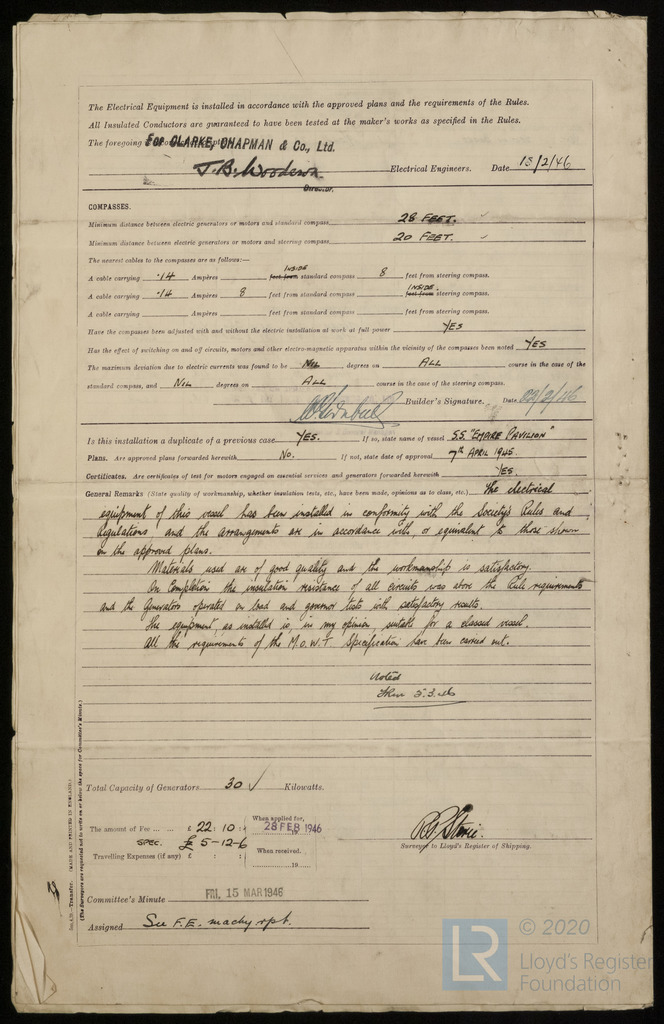 The Electrical Equipment is installed in accordance with the approved plans and the requirements of the Rules.
All Insulated Conductors are guaranteed to have been tested at the maker's works as specified in the Rules.
The foregoing
For CLARKE, CHAPMAN & Co., Ltd.
J. B. Wooderson Electrical Engineers. Date 13/2/46
Director.
COMPASSES.
Minimum distance between electric generators or motors and standard compass 28 FEET. ✓
Minimum distance between electric generators or motors and steering compass 20 FEET. ✓
The nearest cables to the compasses are as follows:—
A cable carrying ·14 Ampères INSIDE feet from standard compass 8 feet from steering compass.
A cable carrying ·14 Ampères 8 feet from standard compass INSIDE. feet from steering compass.
A cable carrying Ampères feet from standard compass feet from steering compass.
Have the compasses been adjusted with and without the electric installation at work at full power YES
Has the effect of switching on and off circuits, motors and other electro-magnetic apparatus within the vicinity of the compasses been noted YES
The maximum deviation due to electric currents was found to be NIL degrees on ALL course in the case of the
standard compass, and NIL degrees on ALL course in the case of the steering compass.
Builder's Signature. Date 22/2/46
Is this installation a duplicate of a previous case YES. If so, state name of vessel S.S. "EMPIRE PAVILION"
Plans. Are approved plans forwarded herewith No. If not, state date of approval 7th APRIL 1945.
Certificates. Are certificates of test for motors engaged on essential services and generators forwarded herewith YES.
General Remarks (State quality of workmanship, whether insulation tests, etc., have been made, opinions as to class, etc.) The electrical
equipment of this vessel has been installed in conformity with the Society's Rules and
Regulations and the arrangements are in accordance with, or equivalent to those shown
on the approved plans.
Materials used are of good quality and the workmanship is satisfactory.
On Completion the insulation resistance of all circuits was above the Rule requirements
and the Generators operated on load and governor tests with satisfactory results.
The equipment as installed is, in my opinion, suitable for a classed vessel.
All the requirements of the M.O.W.T. Specification have been carried out.
Noted
5.3.46
Total Capacity of Generators 30 ✓ Kilowatts.
The Amount of Fee ... ... £ 22 : 10 :
SPEC. £ 5-12-6
Travelling Expenses (if any) £ : :
When applied for,
28 FEB 1946
When received,
19
Surveyor to Lloyd's Register of Shipping.
Committee's Minute FRI. 15 MAR 1946
Assigned See F.E. machy rpt.
Transfer. (MADE AND PRINTED IN ENGLAND.)
(The Surveyors are requested not to write on or below the space for Committee's Minute.)
LR © 2020
Lloyd's Register
Foundation